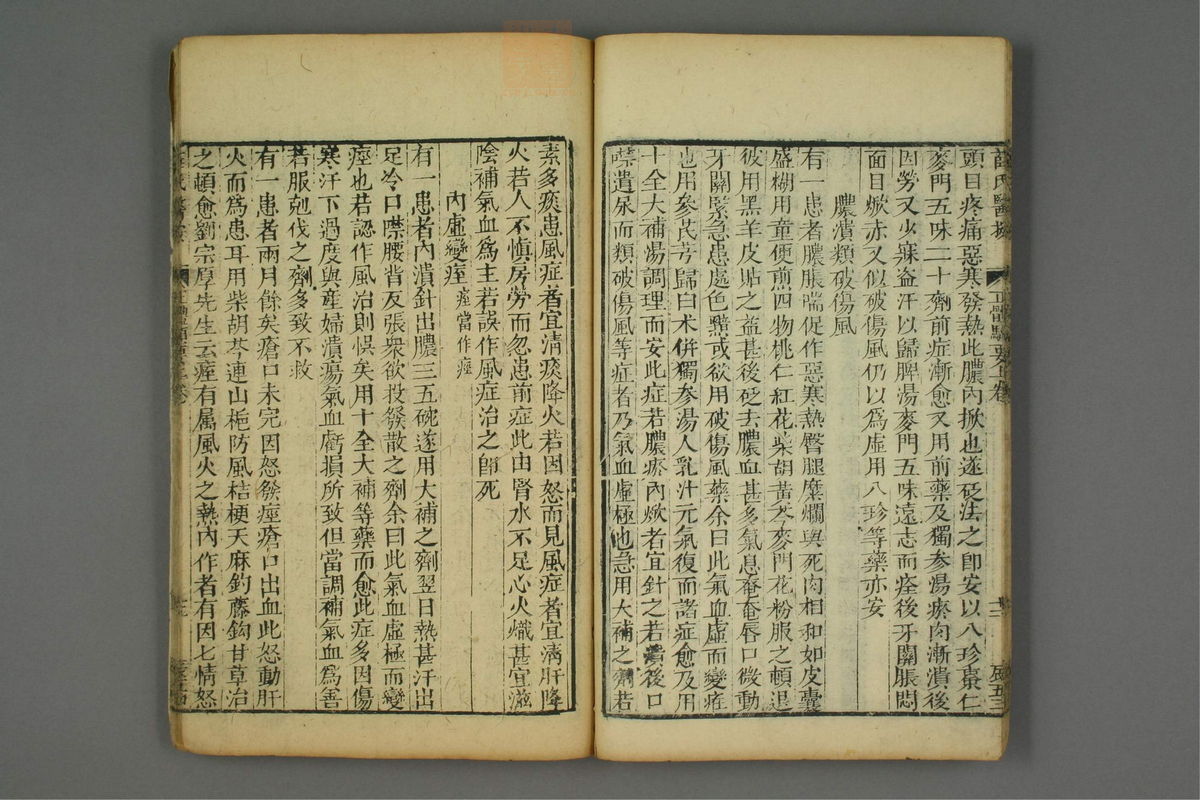 頭目疼痛惡寒發熱此膿內掀也遂砭法之即安以八珍棗仁
麥門五味二十劑前症漸愈又用前藥及獨參湯瘀肉漸潰後
因勞又少寐盗汗以歸脾湯麥門五味遠志而痊後牙關脹悶
面目焮赤又似破傷風仍以爲虛用八珍等藥亦安
膿潰類破傷風
有一患者膿脹喘促作惡寒熱臀腿糜爛與死肉相和如皮囊
盛糊用童便煎四物桃仁紅花柴胡黃芩麥門花粉服之頓退
彼用黑羊皮貼之益甚後砭去膿血甚多氣息奄奄唇口微動
牙關緊急患處色黯或欲用破傷風藥余曰此氣血虛而變症
也用參芪芎歸白术併獨參湯人乳汁元氣復而諸症愈乃用
十全大補湯調理而安此症若膿瘀內焮者宜針之若潰後口
禁遺尿而類破傷風等症者乃氣血虛極也急用大補之劑若
素多痰患風症者宜清痰降火若因怒而見風症者宜淸肝降
火若人不慎房勞而忽患前症此由腎水不足心火熾甚宜滋
陰補氣血爲主若誤作風症治之卽死
內虛變痓 痓當作痙
有一患者內潰針出膿三五碗遂用大補之劑翌日熱甚汗出
足冷口噤腰背反張衆欲投發散之劑余曰此氣血虛極而變
痙也若認作風治則悞矣用十全大補等藥而愈此症多因傷
寒汗下過度與産婦潰瘍氣血虧損所致但當調補氣血爲善
若服剋伐之劑多致不救
有一患者兩月餘矣瘡口未完因怒發痙瘡口出血此怒動肝
火而爲患耳用柴胡芩連山梔防風桔梗天麻釣藤鈎甘草治
之頓愈劉宗厚先生云痙有属風火之熱內作者有因七情怒